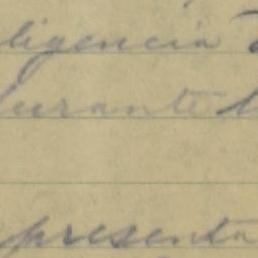 ligencia
durante
presenta